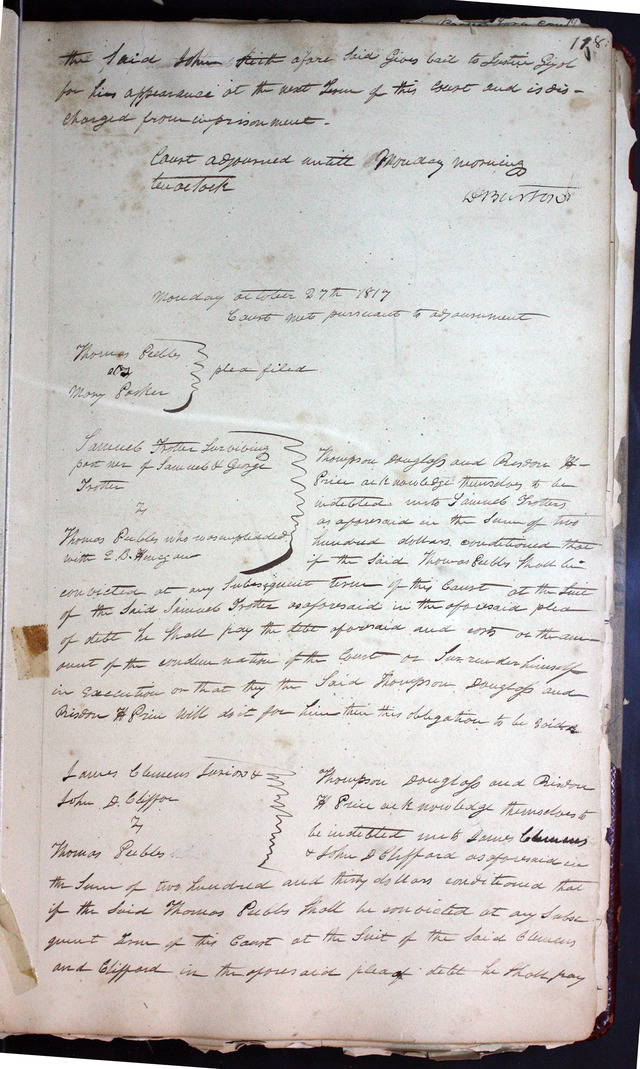 118
the Said John Keith afore Said Gives bail to Justice
for his appearance at the next Term of this Court and is dis-
charged from imprisonment.
Court adjourned untill Monday morning
ten oclock
D Burton
Monday october 27th 1817
Court met pursuant to adjournment
Thomas Peebles
Mary Parker
plea filed
Samuel Trotter Surviving
partner of Samuel & George
Trotter
v
Thomas Peebles who was impleaded
with E. B.
Thompson Douglass and Risdon H
Price acknowledge themselves to be
indebted unto Samuel Trotter
as aforesaid in the Sum of two
hundred dollars. conditioned that
if the Said Thomas Peebles Shall be
convicted at any Subsequent term of this Court at the Suit
of the Said Samuel Trotter as aforesaid in the aforesaid plea
of debt he Shall pay the debt aforesaid and costs or the am-
ount of the condemnation of the Court or Surrender himself
in Execution or that they the Said Thompson Douglass and
Risdon H Price will do it for him then this obligation to be void
James Clemens Junior &
John D. Cliffor
v
Thomas Peebles
Thompson Douglass and Risdon
H Price acknowledge themselves to
be indebted unto James Clemens
& John D Clifford as aforesaid in
the Sum of two hundred and thirty dollars conditioned that
if the Said Thomas Peebles Shall be convicted at any Subse-
quent Term of this Court at the Suit of the Said Clemens
and Clifford in the aforesaid plea of debt he Shall pay